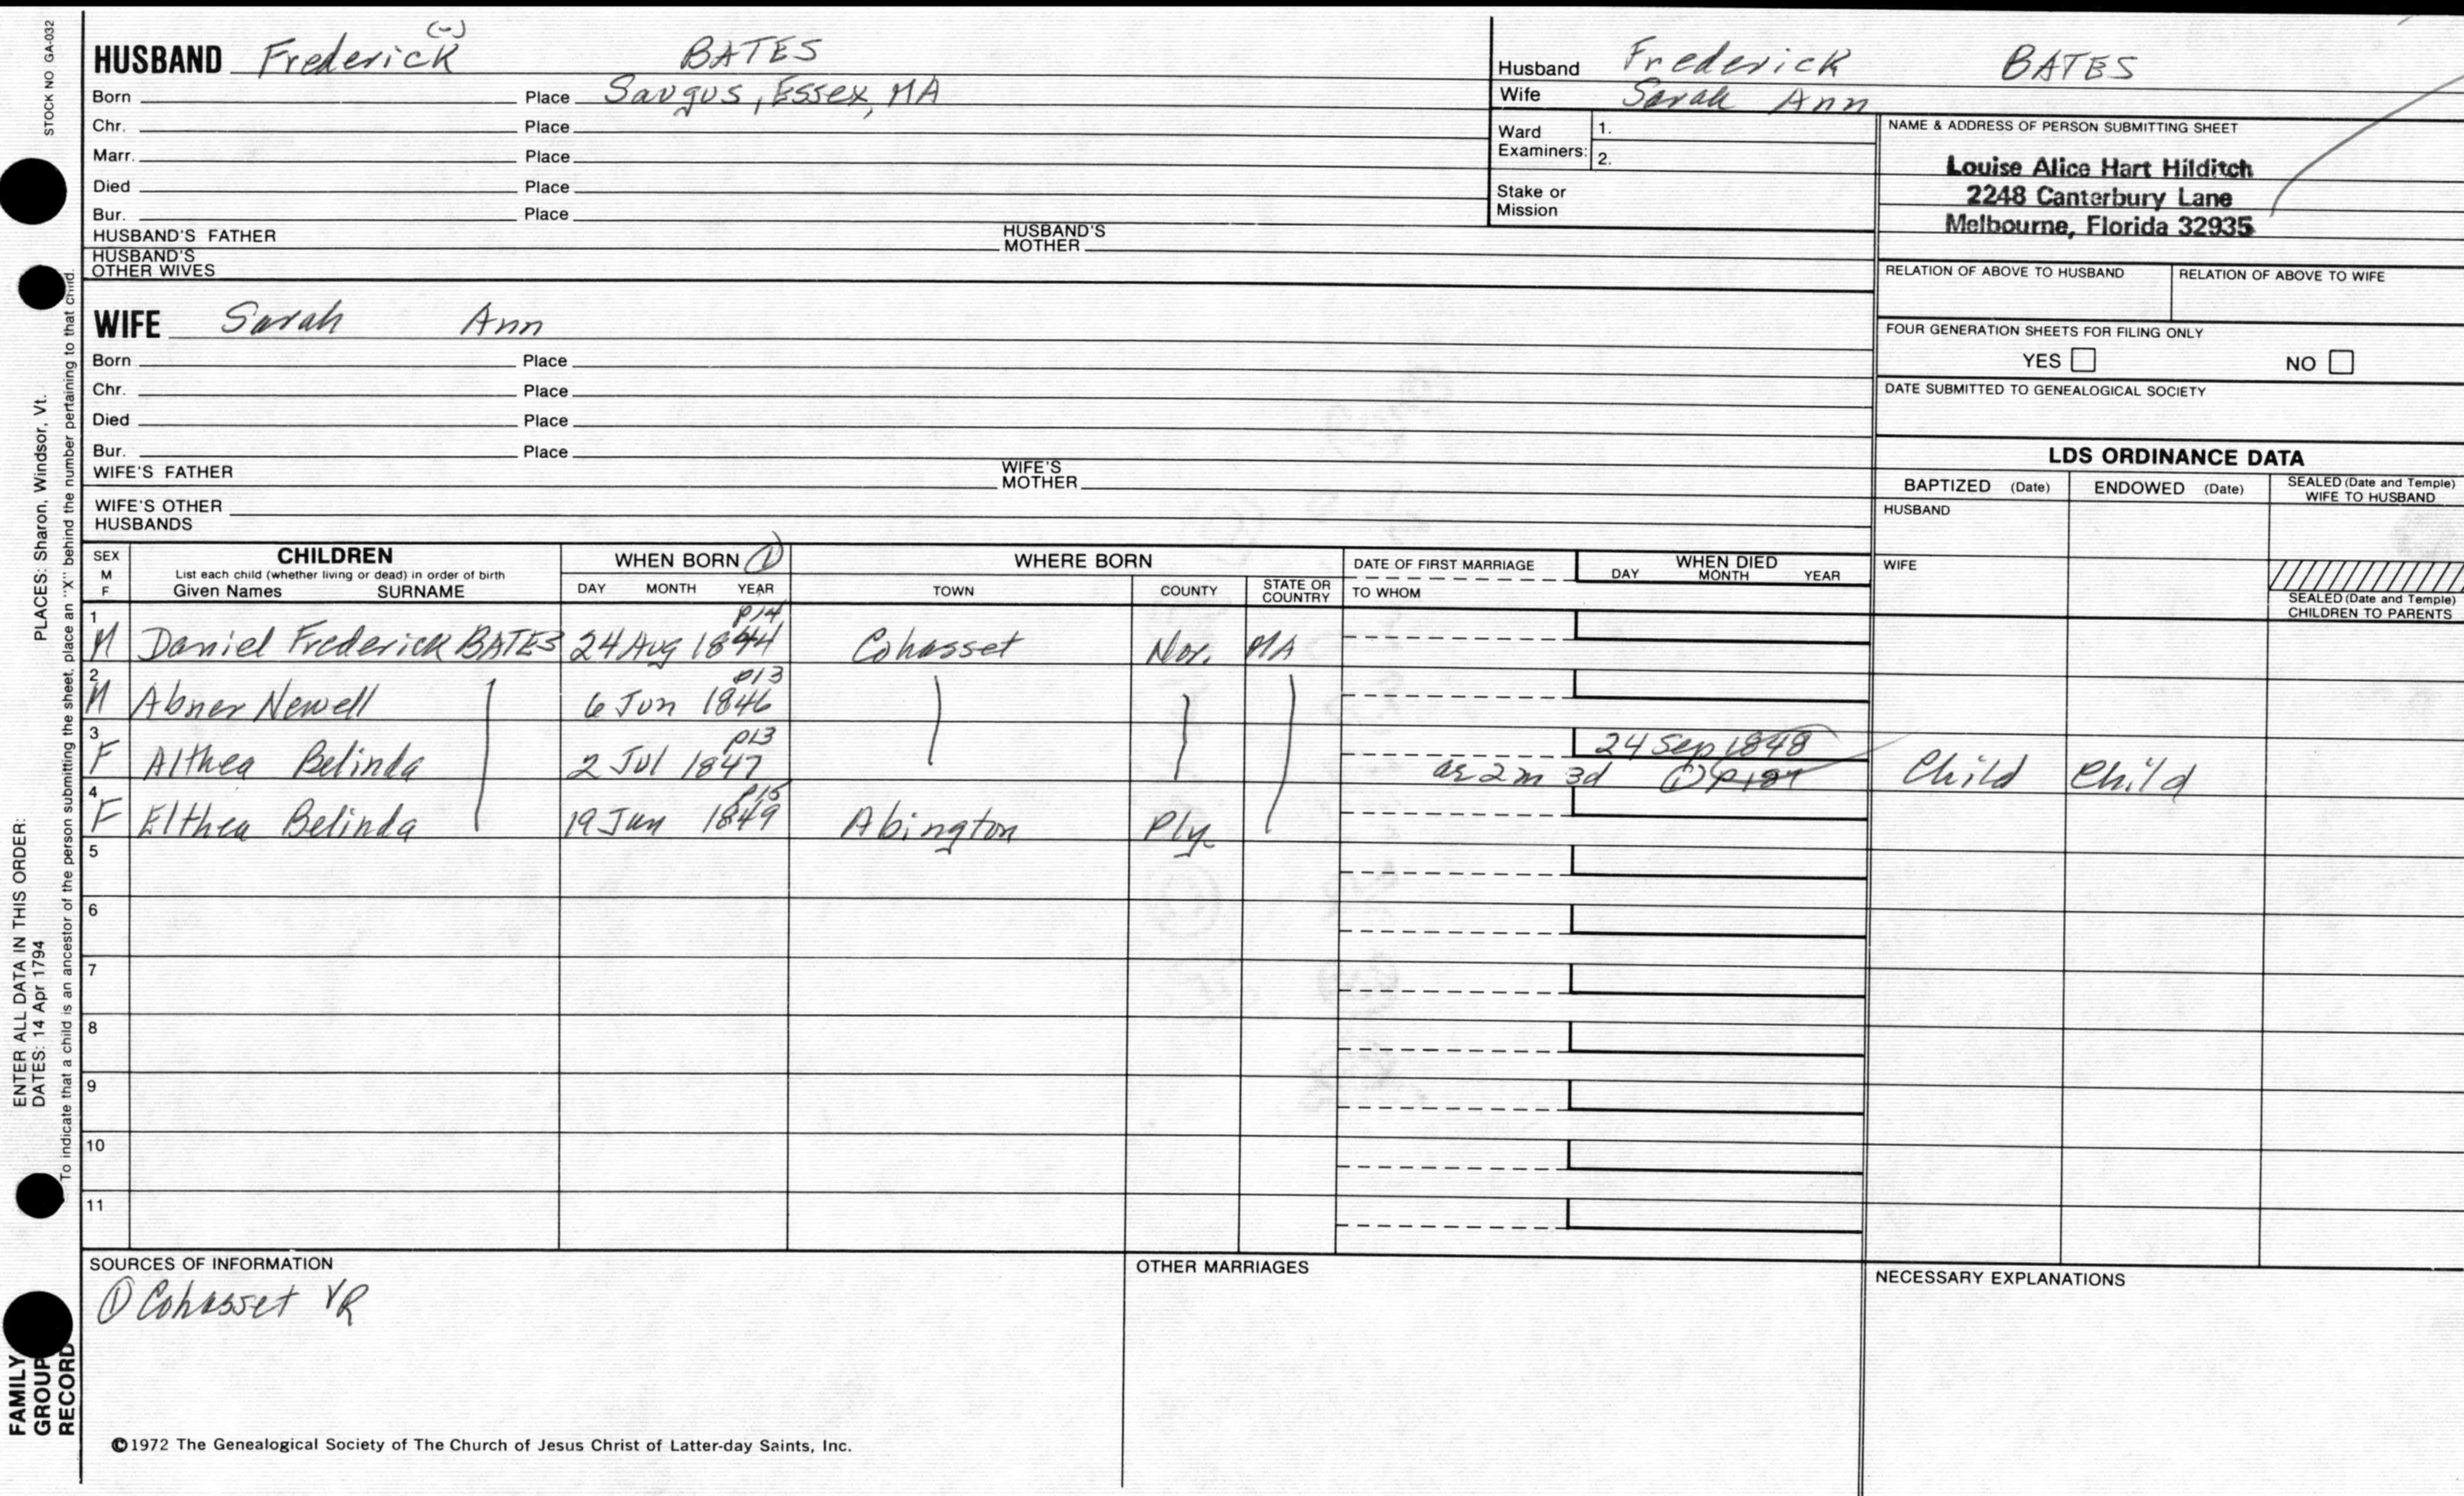 STOCK NO GA-032
PLACES: Sharon, Windsor, Vt.
ENTER ALL DATA IN THIS ORDER:
DATES: 14 Apr 1794
To indicate that a child is an ancestor of the person submitting the sheet, place an "X" behind the number pertaining to that child.
FAMILY
GROUP
RECORD
(-)
HUSBAND Frederick BATES
Born Place Saugus, Essex, MA
Chr. Place
Marr. Place
Died Place
Bur. Place
HUSBAND'S FATHER HUSBAND'S MOTHER
HUSBAND'S OTHER WIVES
WIFE Sarah Ann
Born Place
Chr. Place
Died Place
Bur. Place
WIFE'S FATHER WIFE'S MOTHER
WIFE'S OTHER HUSBANDS
Husband Frederick BATES
Wife Sarah Ann
Ward Examiners: 1.
2.
Stake or Mission
NAME & ADDRESS OF PERSON SUBMITTING SHEET
Louise Alice Hart Hilditch
2248 Canterbury Lane
Melbourne, Florida 32935
RELATION OF ABOVE TO HUSBAND RELATION OF ABOVE TO WIFE
FOUR GENERATION SHEETS FOR FILING ONLY
YES NO
DATE SUBMITTED TO GENEALOGICAL SOCIETY
LDS ORDINANCE DATA
BAPTIZED (Date) ENDOWED (Date) SEALED (Date and Temple) WIFE TO HUSBAND
HUSBAND
WIFE
SEALED (Date and Temple) CHILDREN TO PARENTS
SEX M F
CHILDREN
List each child (whether living or dead) in order of birth
Given Names SURNAME
WHEN BORN ①
DAY MONTH YEAR
WHERE BORN
TOWN COUNTY STATE OR COUNTRY
DATE OF FIRST MARRIAGE
TO WHOM
WHEN DIED
DAY MONTH YEAR
p14
1 M Daniel Frederick BATES 24 Aug 1844 Cohasset Nor. MA
p13
2 M Abner Newell 6 Jun 1846
p13 24 Sep 1848
3 F Althea Belinda 2 Jul 1847 ae 2m 3d ① p187 Child Child
p15
4 F Elthea Belinda 19 Jun 1849 Abington Ply.
5
6
7
8
9
10
11
SOURCES OF INFORMATION
① Cohasset VR
OTHER MARRIAGES
NECESSARY EXPLANATIONS
©1972 The Genealogical Society of The Church of Jesus Christ of Latter-day Saints, Inc.